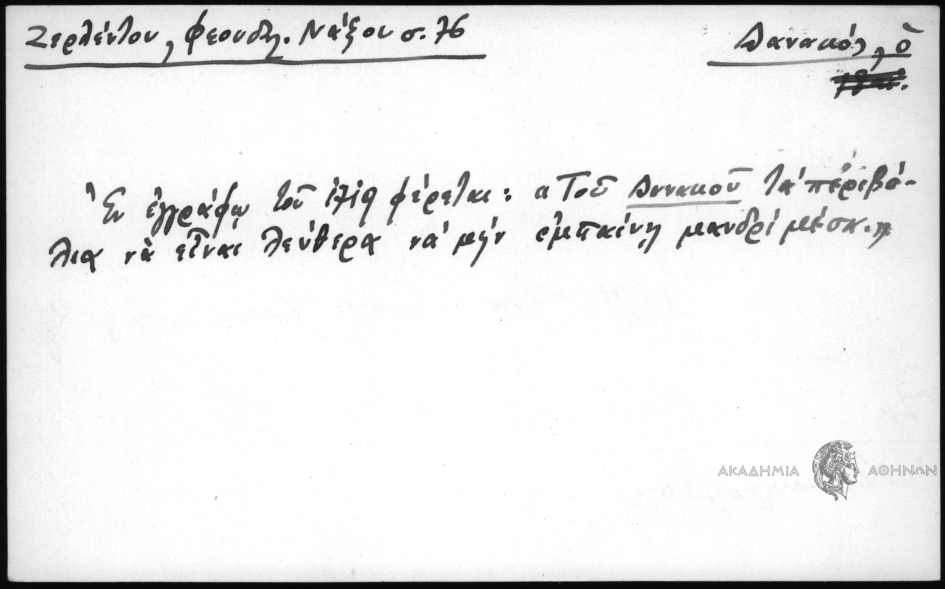 Ζερλέντου, Φεουδλ. Νάξου σ. 76
Δανακός, ὁ
Ἐν ἐγγράφῳ τοῦ φέρεται: « Τοῦ Δανακοῦ τὰ περιβό-
λια νὰ εἶναι λεύθερα νὰ μὴν ἐμπαίνῃ μανδρὶ μέσα. »
ΑΚΑΔΗΜΙΑ ΑΘΗΝΩΝ